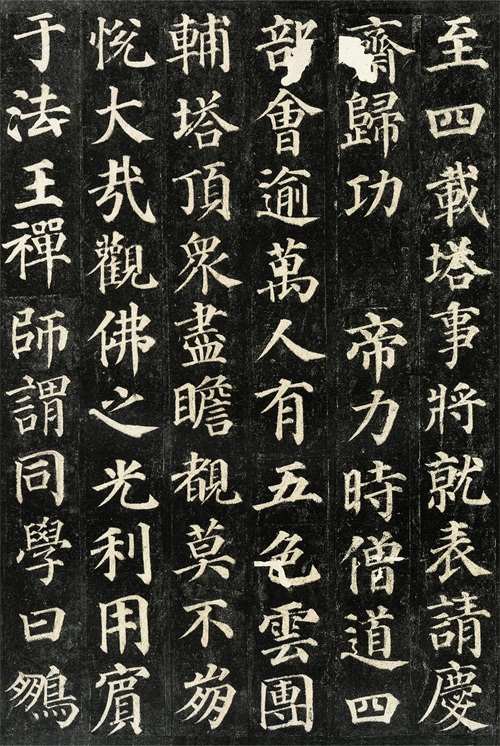 至四載塔事將就表請慶
齋歸功 帝力時僧道四
部會逾萬人有五色雲團
輔塔頂衆盡瞻覩莫不崩
悅大哉觀佛之光利用賓
于法王禪師謂同學曰鵬